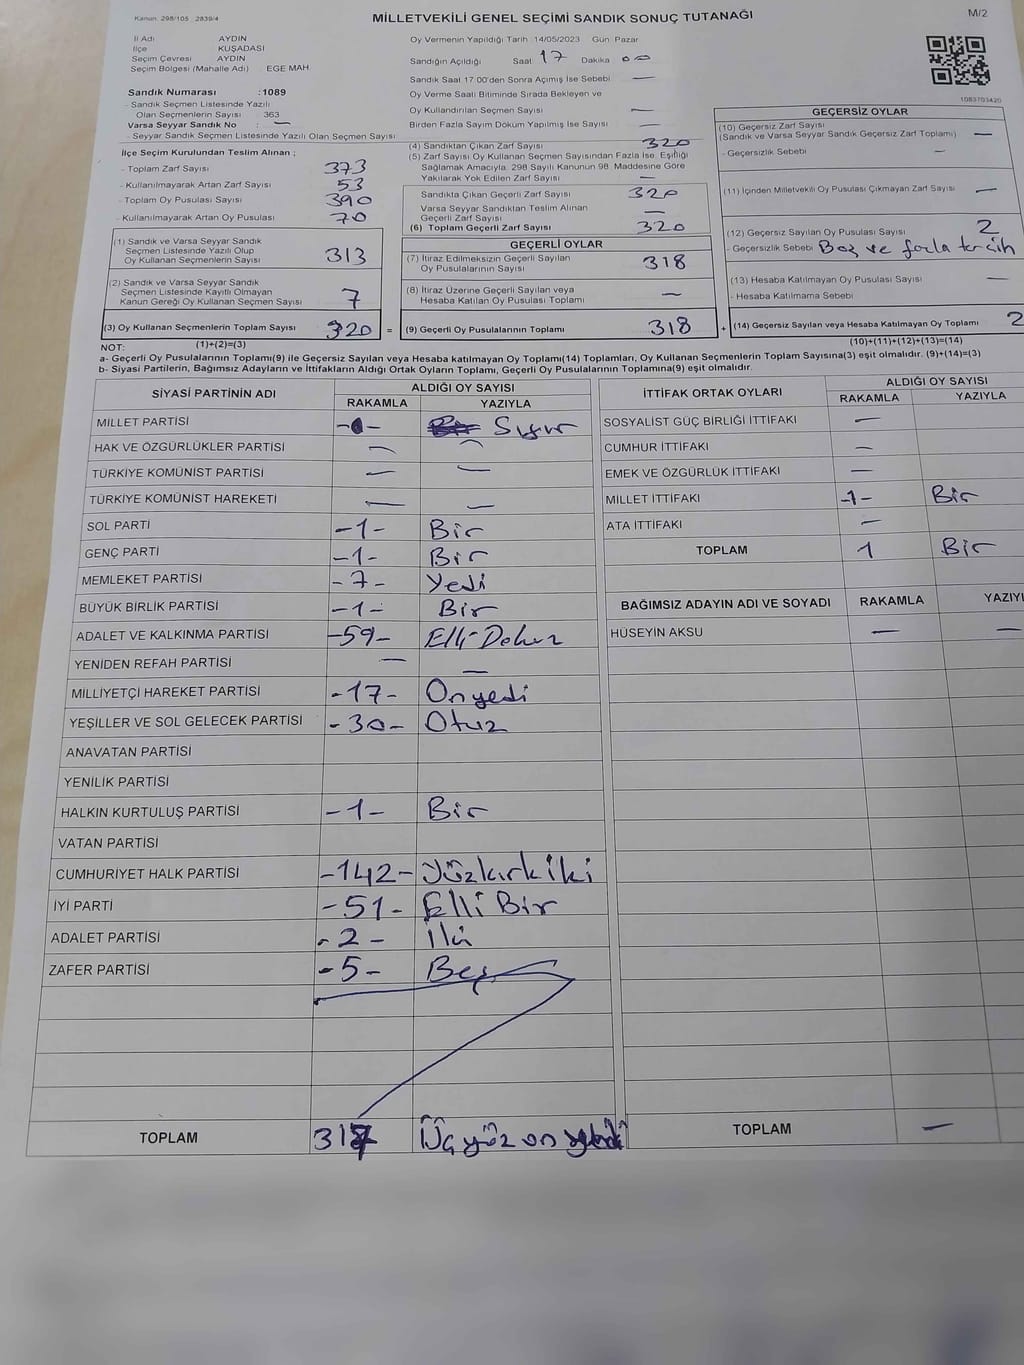 Kanun. 298/105 2839/4
MİLLETVEKİLİ GENEL SEÇİMİ SANDIK SONUÇ TUTANAĞI
M/2
İl Adı AYDIN
İlçe KUŞADASI
Seçim Çevresi AYDIN
Seçim Bölgesi (Mahalle Adı) EGE MAH.
Sandık Numarası :1089
- Sandık Seçmen Listesinde Yazılı
Olan Seçmenlerin Sayısı : 363
Varsa Seyyar Sandık No : —
- Seyyar Sandık Seçmen Listesinde Yazılı Olan Seçmen Sayısı
Oy Vermenin Yapıldığı Tarih 14/05/2023 Gün Pazar
Sandığın Açıldığı Saat 17 Dakika 00
Sandık Saat 17:00'den Sonra Açımış İse Sebebi —
Oy Verme Saati Bitiminde Sırada Bekleyen ve
Oy Kullandırılan Seçmen Sayısı —
Birden Fazla Sayım Döküm Yapılmış İse Sayısı —
1083703420
İlçe Seçim Kurulundan Teslim Alınan ;
- Toplam Zarf Sayısı 373
- Kullanılmayarak Artan Zarf Sayısı 53
- Toplam Oy Pusulası Sayısı 390
- Kullanılmayarak Artan Oy Pusulası 70
(1) Sandık ve Varsa Seyyar Sandık
Seçmen Listesinde Yazılı Olup
Oy Kullanan Seçmenlerin Sayısı 313
(2) Sandık ve Varsa Seyyar Sandık
Seçmen Listesinde Kayıtlı Olmayan
Kanun Gereği Oy Kullanan Seçmen Sayısı 7
(3) Oy Kullanan Seçmenlerin Toplam Sayısı 320 =
(4) Sandıktan Çıkan Zarf Sayısı 320
(5) Zarf Sayısı Oy Kullanan Seçmen Sayısından Fazla İse, Eşitliği
Sağlamak Amacıyla, 298 Sayılı Kanunun 98. Maddesine Göre
Yakılarak Yok Edilen Zarf Sayısı —
Sandıkta Çıkan Geçerli Zarf Sayısı 320
Varsa Seyyar Sandıktan Teslim Alınan
Geçerli Zarf Sayısı —
(6) Toplam Geçerli Zarf Sayısı 320
GEÇERLİ OYLAR
(7) İtiraz Edilmeksizin Geçerli Sayılan
Oy Pusulalarının Sayısı 318
(8) İtiraz Üzerine Geçerli Sayılan veya
Hesaba Katılan Oy Pusulası Toplamı —
(9) Geçerli Oy Pusulalarının Toplamı 318 +
GEÇERSİZ OYLAR
(10) Geçersiz Zarf Sayısı
(Sandık ve Varsa Seyyar Sandık Geçersiz Zarf Toplamı) —
- Geçersizlik Sebebi —
(11) İçinden Milletvekili Oy Pusulası Çıkmayan Zarf Sayısı —
(12) Geçersiz Sayılan Oy Pusulası Sayısı 2
- Geçersizlik Sebebi Boş ve fazla tercih
(13) Hesaba Katılmayan Oy Pusulası Sayısı —
- Hesaba Katılmama Sebebi
(14) Geçersiz Sayılan veya Hesaba Katılmayan Oy Toplamı 2
NOT: (1)+(2)=(3) (10)+(11)+(12)+(13)=(14)
a- Geçerli Oy Pusulalarının Toplamı(9) ile Geçersiz Sayılan veya Hesaba katılmayan Oy Toplamı(14) Toplamları, Oy Kullanan Seçmenlerin Toplam Sayısına(3) eşit olmalıdır. (9)+(14)=(3)
b- Siyasi Partilerin, Bağımsız Adayların ve İttifakların Aldığı Ortak Oyların Toplamı, Geçerli Oy Pusulalarının Toplamına(9) eşit olmalıdır.
SİYASİ PARTİNİN ADI ALDIĞI OY SAYISI
RAKAMLA YAZIYLA
MİLLET PARTİSİ -0- Sıfır
HAK VE ÖZGÜRLÜKLER PARTİSİ — —
TÜRKİYE KOMÜNİST PARTİSİ — —
TÜRKİYE KOMÜNİST HAREKETİ — —
SOL PARTİ -1- Bir
GENÇ PARTİ -1- Bir
MEMLEKET PARTİSİ -7- Yedi
BÜYÜK BİRLİK PARTİSİ -1- Bir
ADALET VE KALKINMA PARTİSİ -59- Elli Dokuz
YENİDEN REFAH PARTİSİ — —
MİLLİYETÇİ HAREKET PARTİSİ -17- Onyedi
YEŞİLLER VE SOL GELECEK PARTİSİ -30- Otuz
ANAVATAN PARTİSİ
YENİLİK PARTİSİ
HALKIN KURTULUŞ PARTİSİ -1- Bir
VATAN PARTİSİ
CUMHURİYET HALK PARTİSİ -142- Yüzkırkiki
İYİ PARTİ -51- Elli Bir
ADALET PARTİSİ -2- İki
ZAFER PARTİSİ -5- Beş
TOPLAM 317 Üçyüz on
İTTİFAK ORTAK OYLARI ALDIĞI OY SAYISI
RAKAMLA YAZIYLA
SOSYALİST GÜÇ BİRLİĞİ İTTİFAKI —
CUMHUR İTTİFAKI —
EMEK VE ÖZGÜRLÜK İTTİFAKI —
MİLLET İTTİFAKI -1- Bir
ATA İTTİFAKI —
TOPLAM 1 Bir
BAĞIMSIZ ADAYIN ADI VE SOYADI RAKAMLA YAZIYL
HÜSEYİN AKSU — —
TOPLAM —